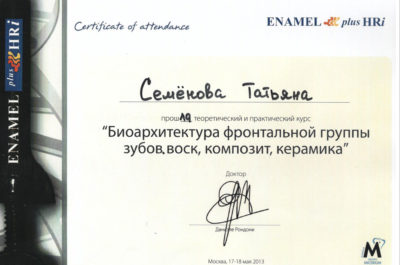 Certificate of attendance
ENAMEL plus HRi
ENAMEL plus HRi
Семёнова Татьяна
прошла теоретический и практический курс
“Биоархитектура фронтальной группы
зубов, воск, композит, керамика”
Доктор
Даниеле Рондони
Москва, 17-18 мая 2013
M